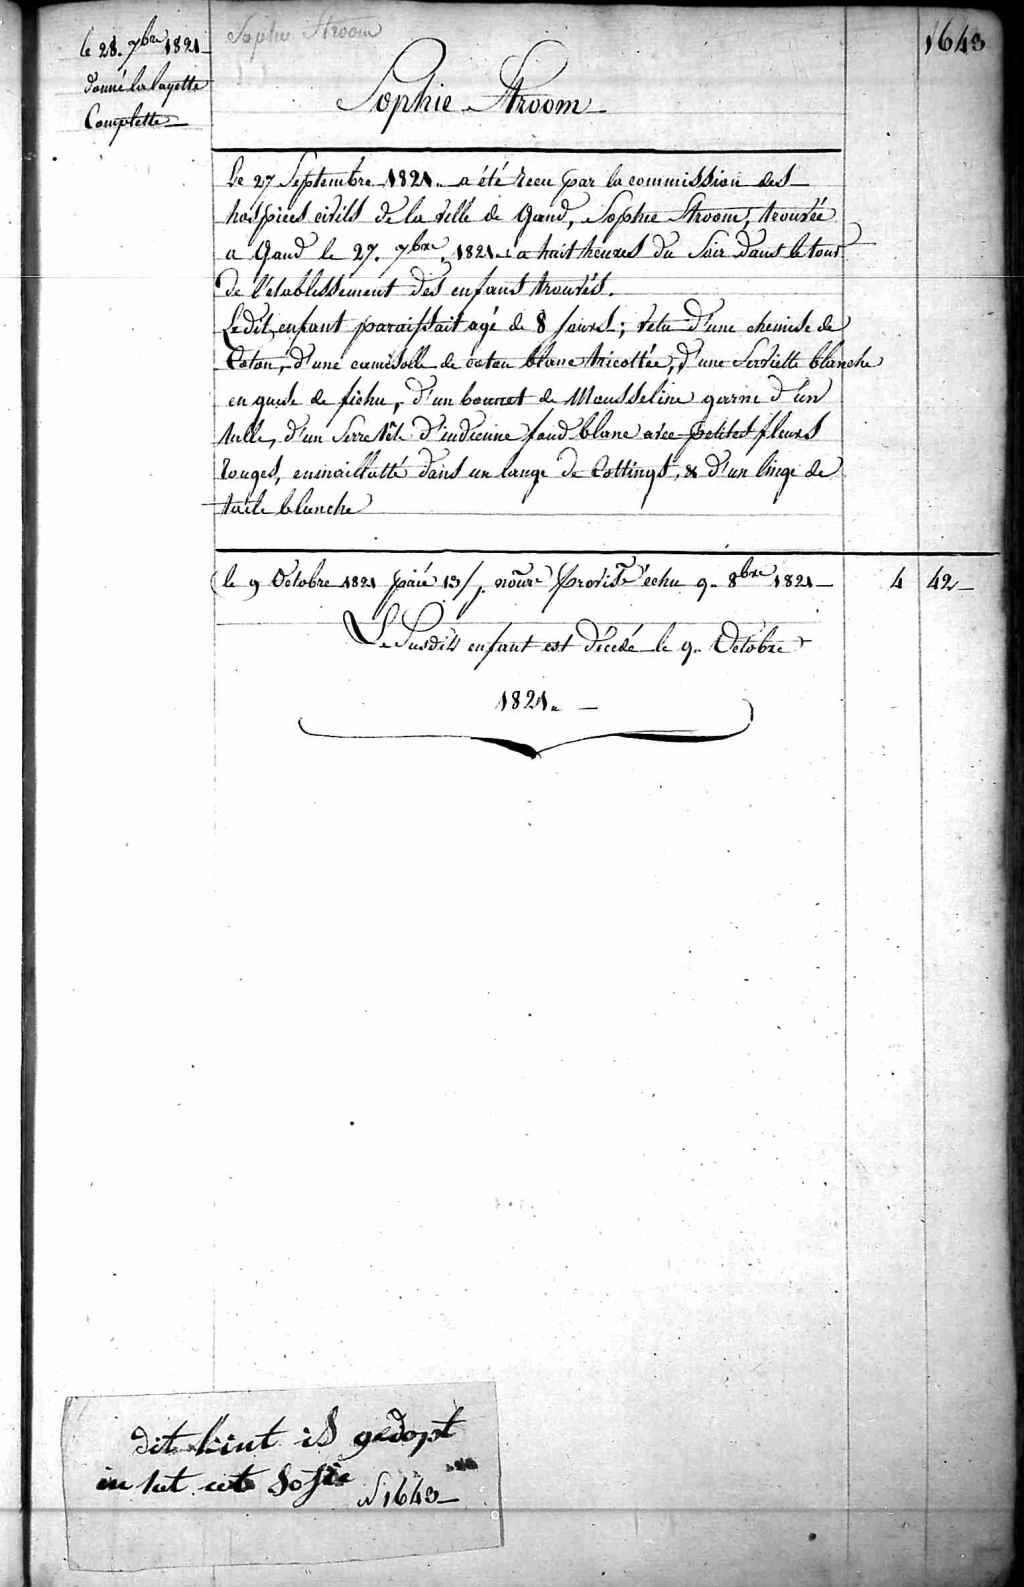 1643
le 28. 7bre 1821
donné la layette
Complette
Sophie Stroom
Sophie Stroom
Le 27 Septembre 1821. a été recu par la commission des
hospices civils de la ville de Gand, Sophie Stroom, trouvée
a Gand le 27. 7bre. 1821. a huit heures du Soir dans le tour
de l'etablissement des enfans trouvés.
Ledit enfant paraissait agé de 8 jours; vetu d'une chemise de
Coton, d'une camisolle de coton blanc tricottée, d'une Serviette blanche
en guise de fichu, d'un bonnet de Mousseline garni d'un
tulle, d'un Serre tête d'indienne fond blanc avec petites fleurs
rouges, emmaillotté dans un lange de Cottings, & d'un linge de
toile blanche
le 9 Octobre 1821 paié 13/j. nourre provisre échu 9. 8bre 1821 4 42
Le Susdits enfant est décedé le 9. Octobre
1821.
dit kint is gedopt
en tat ete Sofie
N 1643